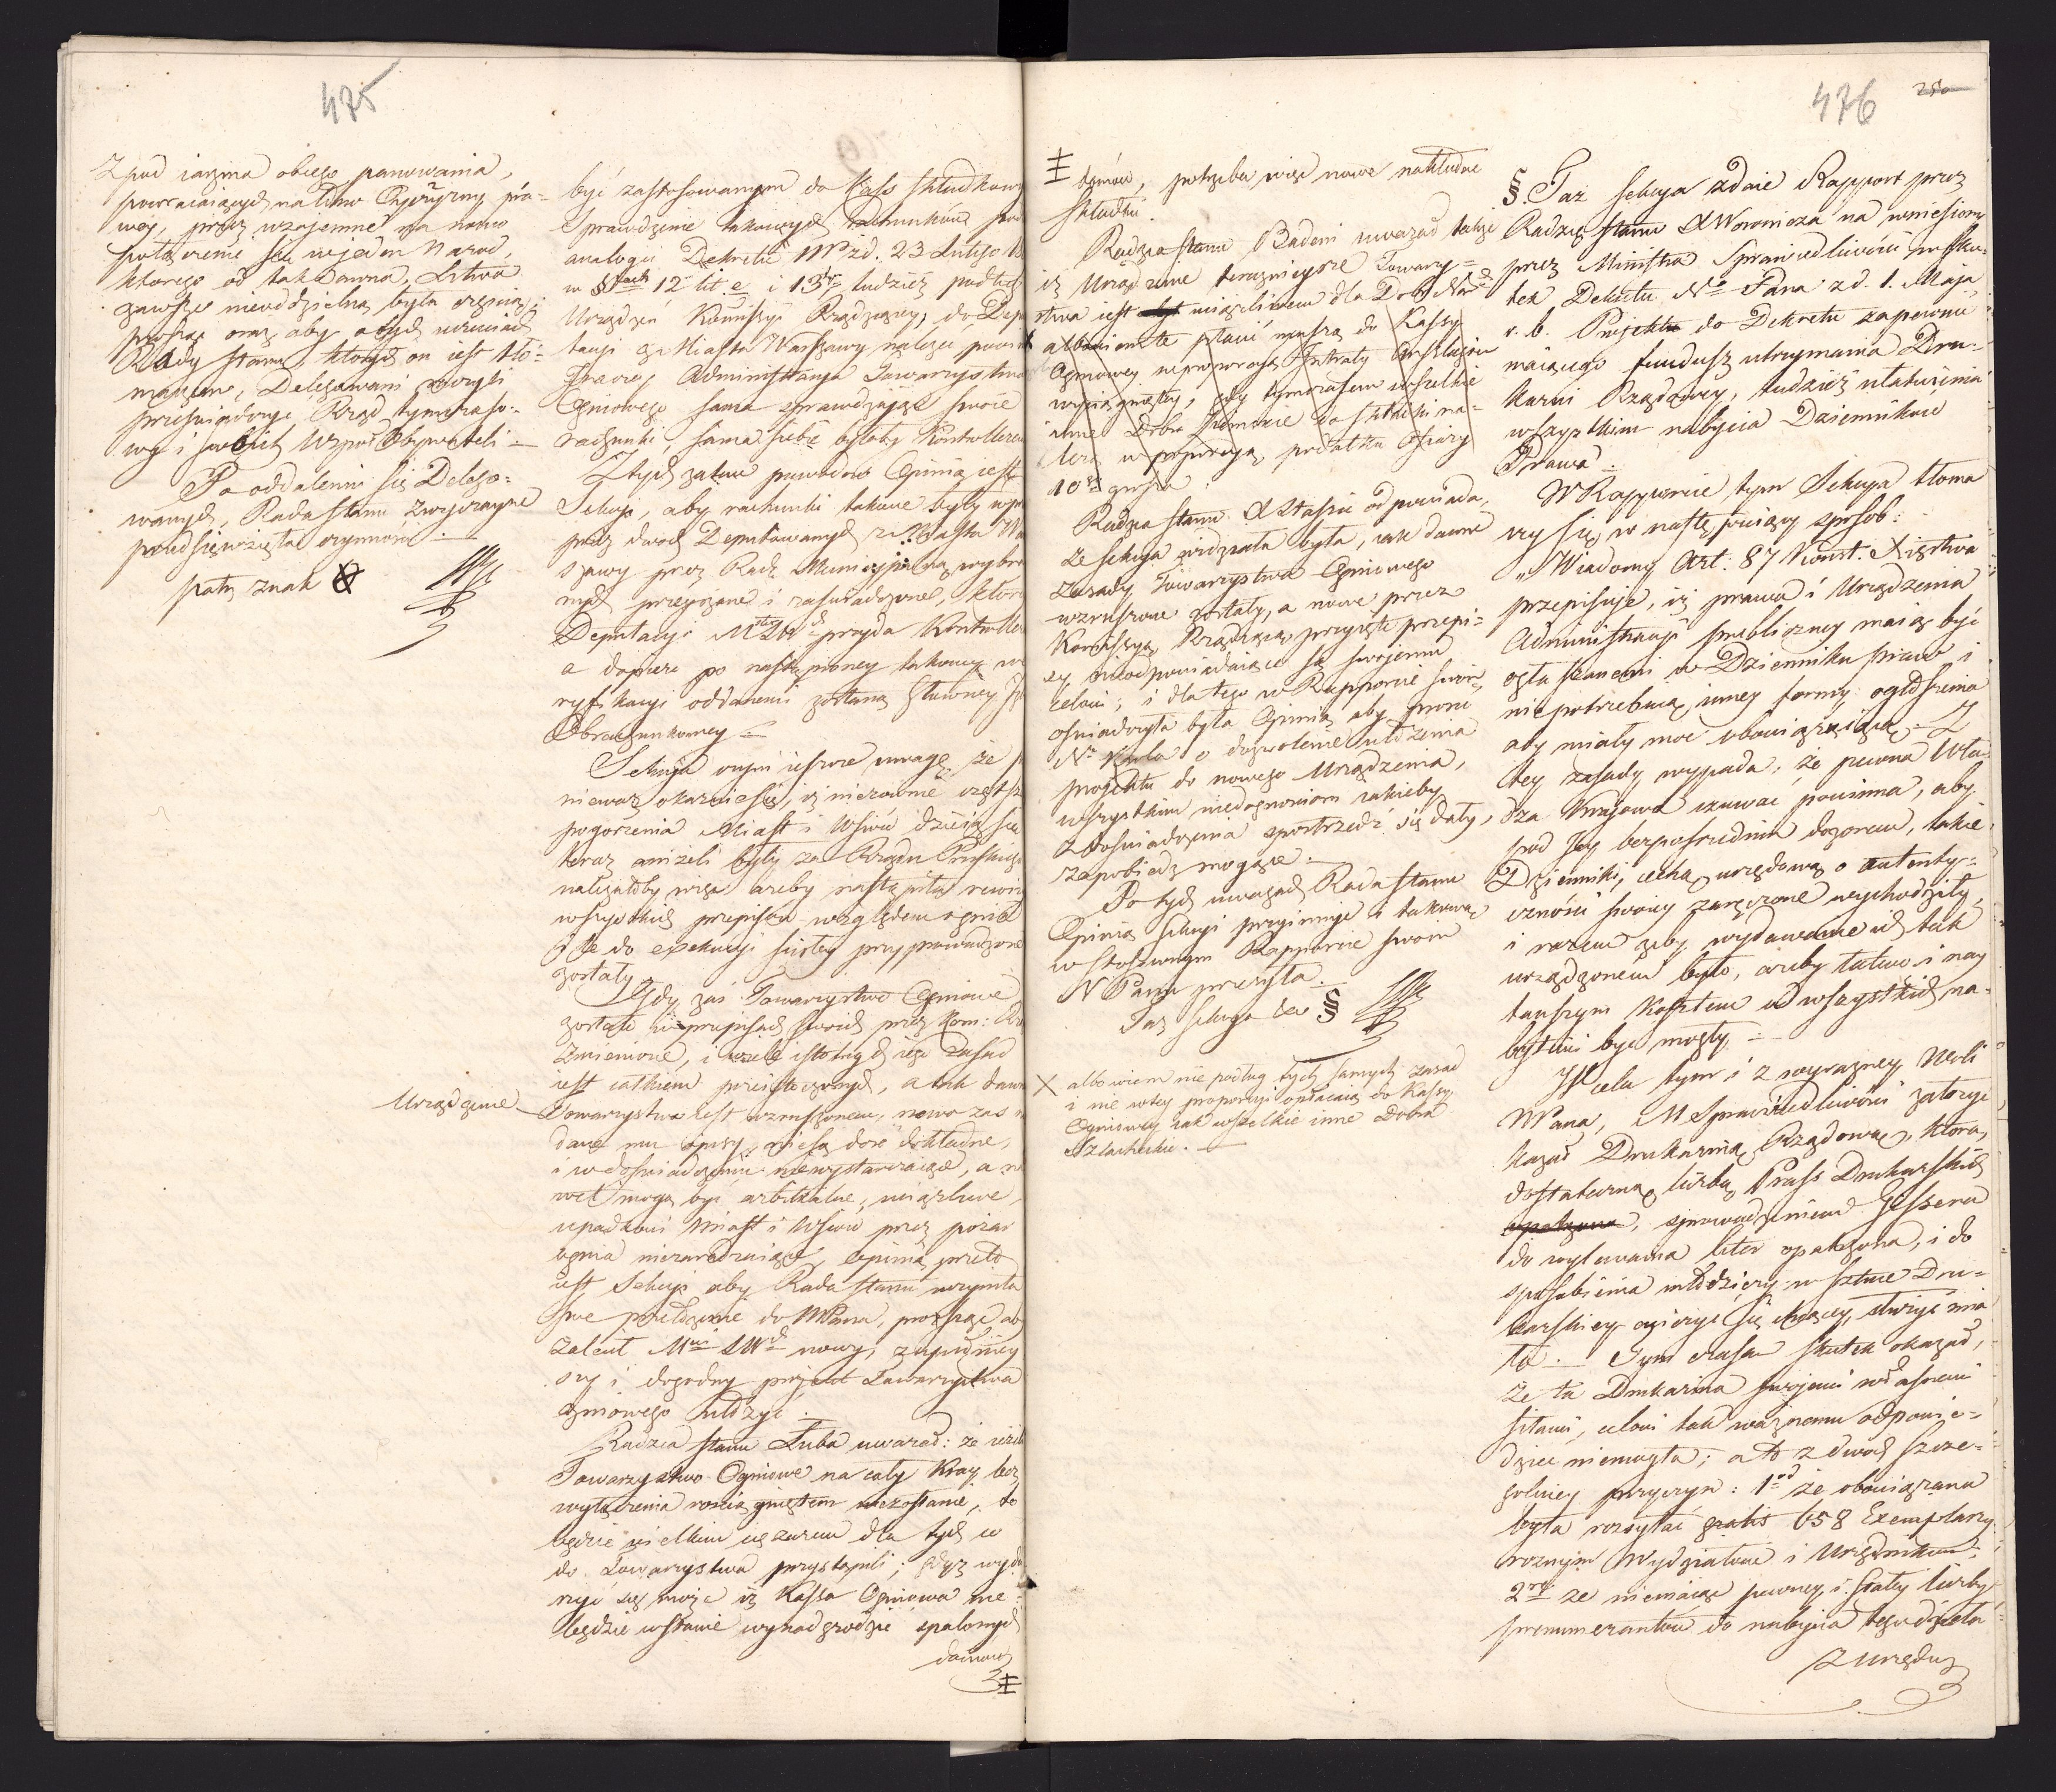 475
Z pod iarzma obcego panowania,
powracaiących na łono Oyczyzny pra-
wey, przez wzajemne na nowo
połączenie się w jeden Narod,
ktorego od tak dawna, Litwa
zawsze nieoddzielną była częścią;
prosząc oraz aby o tych uczuciach
Rady Stanu, ktorych on iest tło-
maczem, Delegowani donieśli
Rząd tymczaso-
wy i swoich Wspoł Obywateli
Po oddaleniu się Delego-
wanych, Rada Stanu zwyczayne
przedsięwzięła czynności.
patrz znak
być zastosowanym do Kass składkowy
Sprawdzenie takowych rachunków
analogii Dekretu NPana d. 23 Lutego
w §fach 12 lit. e i 13 tudzież podług
Urządzeń Kommissyi Rządzącey, do Depu
tacyi z Miasta Warszawy należeć powin
Inaczey Administracya Towarzystwa
Ogniowego sama sprawdzając swoie
rachunki, sama siebie byłaby Kontrollerem
Z tych zatem powodow Opinią iest
Sekcyi, aby rachunki takowe były
przez dwoch Deputowanych z Miasta Wa
szawy przez Radę Municypalną wybra
nych przeyrzane i zaświadczone, ktore
Deputacyi przyda Kontrolle
a dopiero po nastąpioney takowey we
ryfikacyi oddanemi zostaną Główney Iz
Obrachunkowey
Sekcya czyni ieszcze uwagę, że po
nieważ okazuie się, iż nierównie częstsze
pogorzenia Miast i Wsiów dzieią się
teraz aniżeli były za Rządu Pruskiego
należałoby więc ażeby nastąpiła rewiz
wszystkich przepisów względem ognia
i te do exekucyi ścisłey przyprowadzone
zostały.
Gdy zaś Towarzystwo Ogniowe
zostało w przepisach swoich przez Kom: Rz
zmienione, i wiele istotnych iego zasad
iest całkiem przeistoczonych, a tak dawne
Urządzenie
Towarzystwa iest wzruszonem, nowe zaś
dane mu opisy, nie są dość dokładne,
i w doświadczeniu niewystarczaiące, a na
wet mogą być arbitralne, uciążliwe,
upadkowi Miast i Wsiów przez pożar
ognia niezaradzaiące, Opinią przeto
iest Sekcyi aby Rada Stanu uczyniła
swe przełożenie do NPana, prosząc aby
zalecił nowy, zupełniey
szy i dogodny projekt Towarzystwa
Ogniowego ułożyć.
Radzca Stanu Łuba uważał: że ieżeli
Towarzystwo Ogniowe na cały Kray bez
wyłączenia rozciągniętem niezostanie, to
będzie wielkim ciężarem dla tych co
do Towarzystwa przystąpili; gdyż wyda
rzyć się może iż Kassa Ogniowa nie
będzie wstanie wynadgrodzić spalonych
domów
476
250
domów, potrzeba więc nowe nakładać
składki.
Radzca Stanu Badeni uważał także
iż Urządzenie teraznieysze Towarzy-
stwa iest uciążliwem dla Dobr Nar.
albowiem te płacić muszą do Kassy
Ogniowey w proporcyą Intraty Anszlagiem
wyciągnięty, gdy tymczasem wszelkie
inne Dobra Ziemskie do składki na-
leżą w proporcyą podatku Ofiary
10go grosza.
Radzca Stanu X Staszic odpowiada,
że Sekcya widziała była, iak dawne
zasady Towarzystwa Ogniowego
wzruszone zostały, a nowe przez
Kommissyą Rządzącą przyięte przepi-
sy nieodpowiadaiące są swojemu
celowi; i dla tego w Rapporcie swoim
oświadczyła była Opinią aby prosić
N. Króla o dozwolenie ułożenia
projektu do nowego Urządzenia,
wszystkim niedogodnościom iakieby
z doświadczenia spostrzedz się dały,
zapobiedz mogące.
Po tych uwagach Rada Stanu
Opinią Sekcyi przyimuie i takową
w stosownym Rapporcie swoim
N Panu przesyła.
Taż Sekcya etc §
X albowiem nie podług tych samych zasad
i nie w tey proporcyi opłacaią do Kassy
Ogniowey iak wszelkie inne Dobra
Szlacheckie.
§. Taż Sekcya zdaie Rapport przez
Radzcę Stanu X Woronicza na wniesiony
przez Ministra Sprawiedliwości w sku-
tek Dekretu Ngo Pana z d. 1. Maja
r. b. Projektu do Dekretu zapewnia-
maiącego fundusz utrzymania Dru-
karni Rządowey, tudzież ułatwienia
wszystkim nabycia Dzienników
Prawa.
W Rapporcie tym Sekcya tłoma
czy się w następuiący sposob:
„Wiadomy Art: 87 Konst: Xięstwa
przepisuje, iż prawa i Urządzenia
Administracyi publiczney maią być
ogłaszanemi w Dzienniku praw i
niepotrzebuią inney formy ogłoszenia
aby miały moc obowiązuiącą. Z
tey zasady wypada, że pewna Wła-
dza Kraiowa czuwać powinna, aby
pod Jey bezpośrednim dozorem, takie
Dzienniki, cechą urzędową o autenty-
czności swoiey zaręczone wychodziły,
i razem żeby wydawanie ich tak
urządzonem było, ażeby łatwo i nay
tańszym kosztem od wszystkich na-
bytemi być mogły.
W celu tym i z wyraźney Woli
NPana, M Sprawiedliwości założyć
kazał Drukarnią Rządową, ktora,
dostateczną liczbą Prass Drukarskich
, sprowadzeniem Gissera
do wylewania liter opatrzona, i do
sposobienia młodzieży w sztuce Dru-
karskiey ćwiczyć się chcącey, służyć mia
ła. Tym czasem skutek okazał,
że ta Drukarnia swojemi własnemi
siłami, celowi tak ważnemu odpowie-
dzieć niemogła; a to z dwoch szcze-
golniey przyczyn: 1od że obowiązana
była rozsyłać gratis 658 Exemplarzy
rożnym Wydziałom i Urzędnikom;
2re że niemaiąc pewney i stałey liczby
prenumerantów do nabycia tego dzieła
z Urzędu